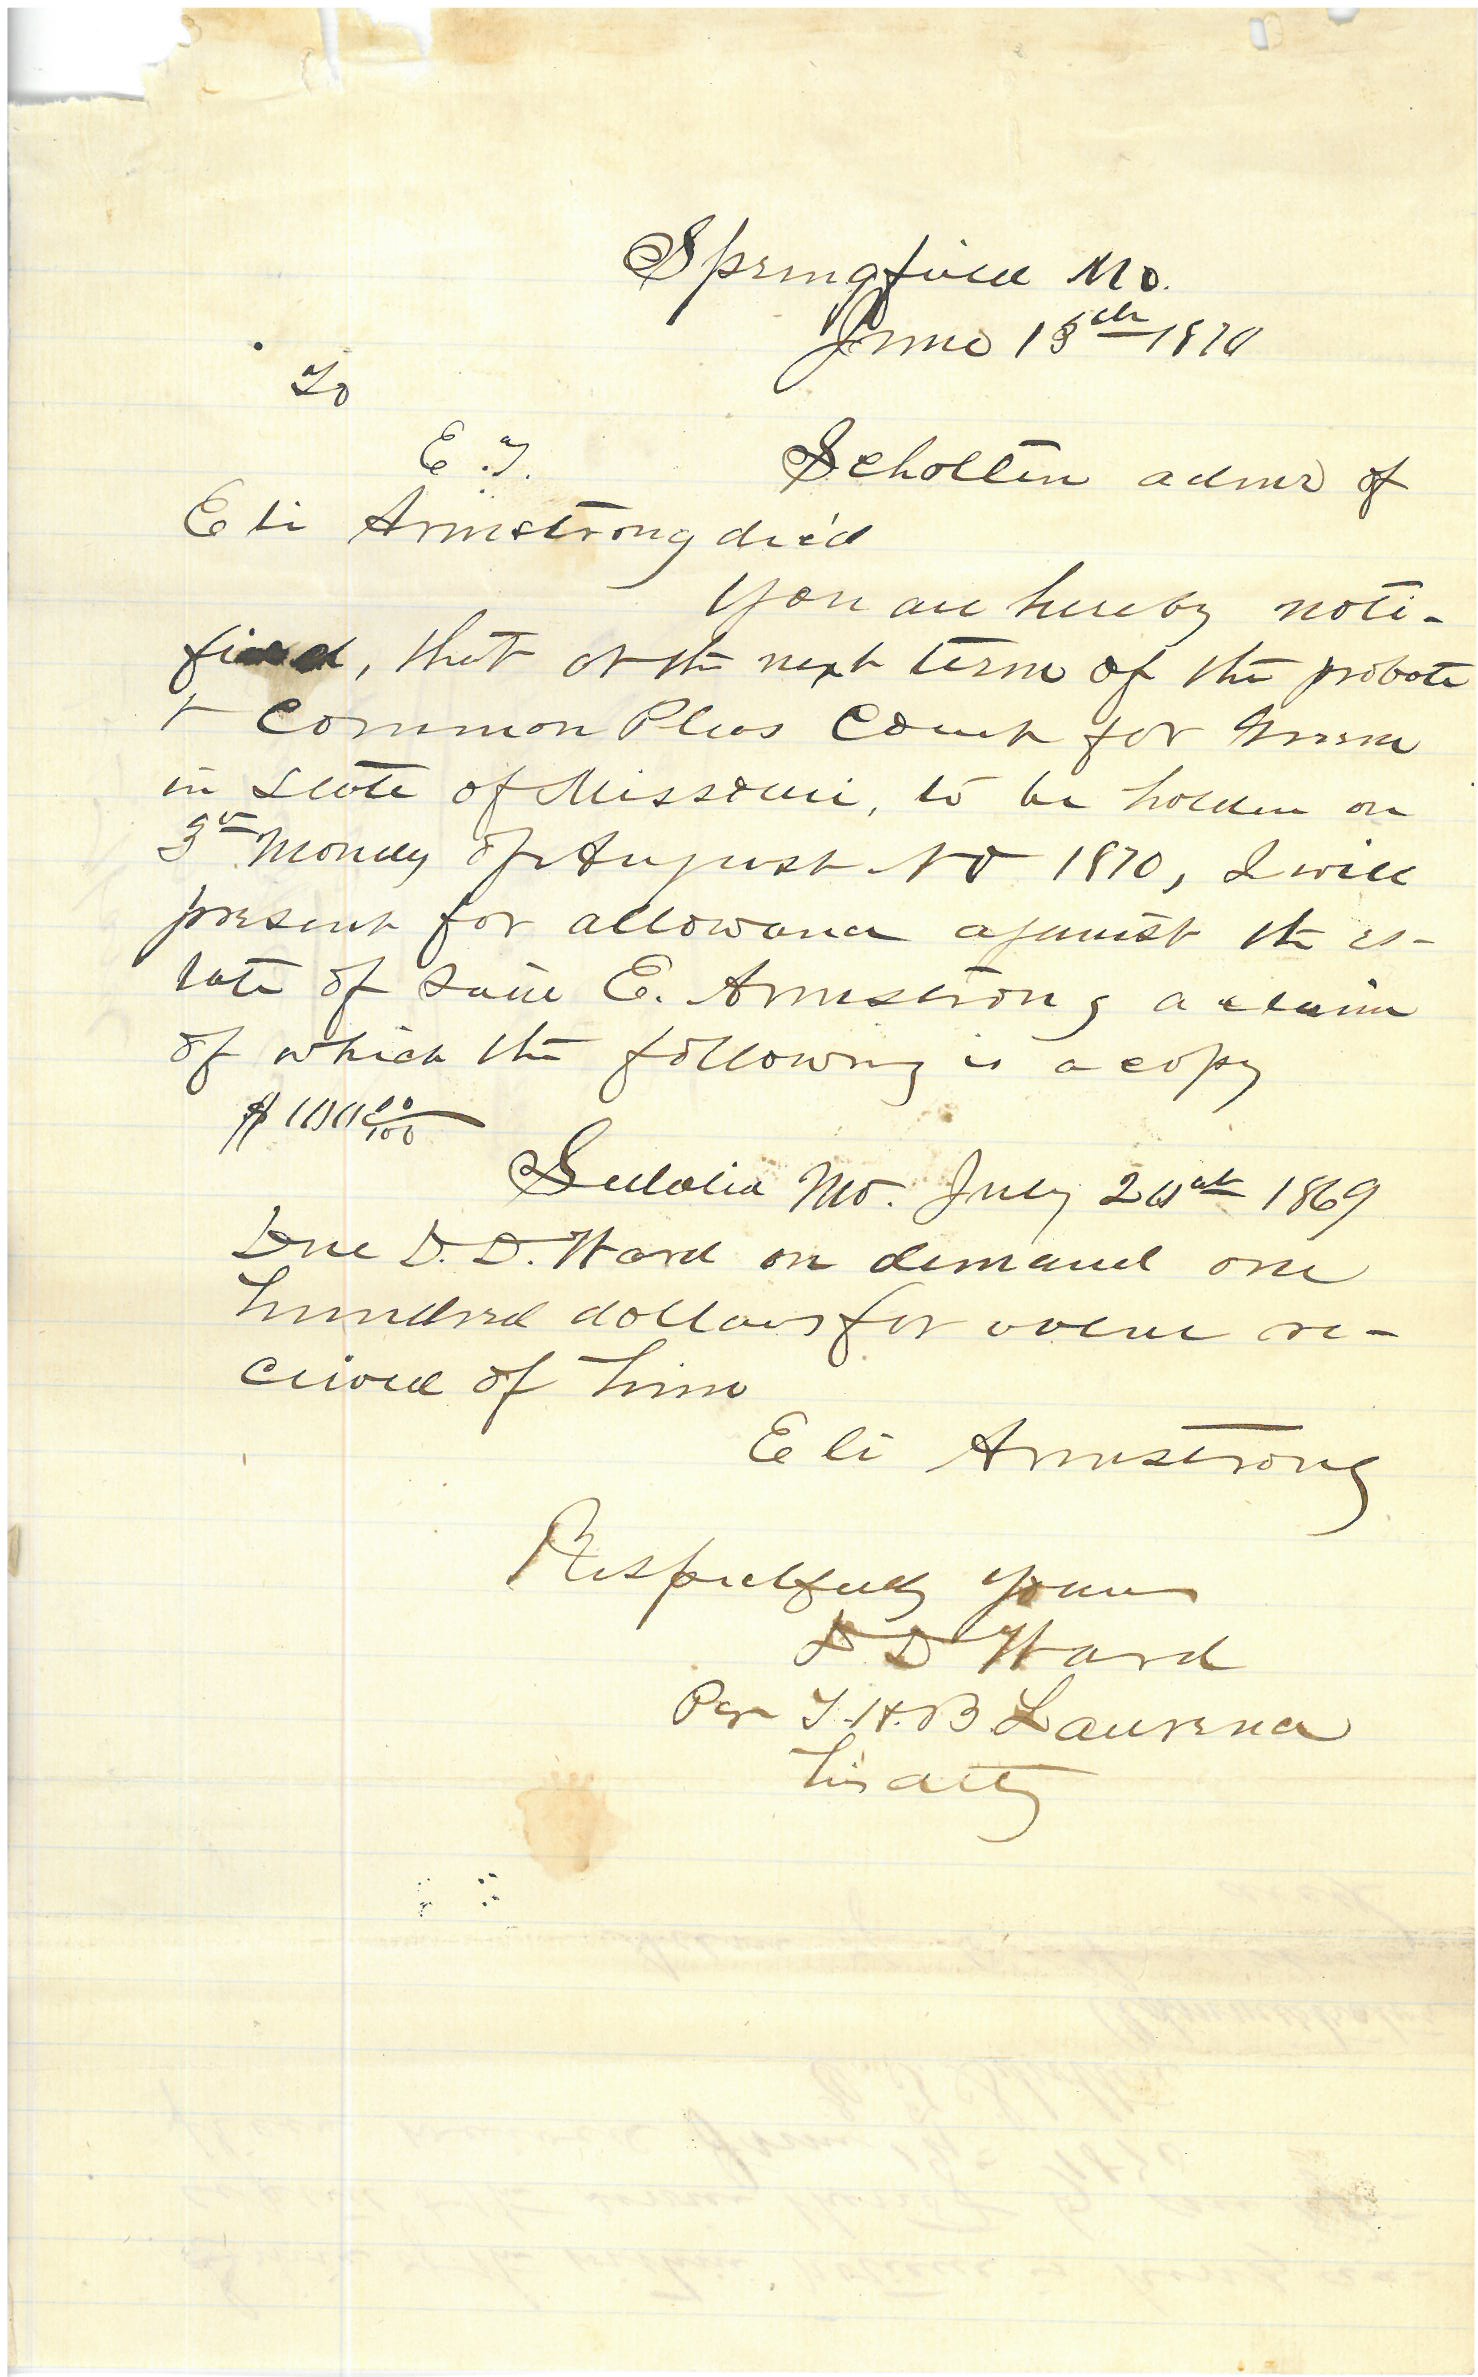 Springfield Mo.
June 18th 1870
To
E. T. Scholten admr of
Eli Armstrong dec'd
You are hereby noti-
fied, that at the next term of the probate
+ Common Pleas Court for Greene
in State of Missouri, to be holden on
3rd Monday of August AD 1870, I will
present for allowance against the es-
tate of said E. Armstrong a claim
of which the following is a copy
$100 00/100
Sedalia Mo. July 20th 1869
Due D. D. Ward on demand one
hundred dollars for value re-
ceived of him
Eli Armstrong
Respectfully yours
D D Ward
Per T. H. B Laurence
his atty